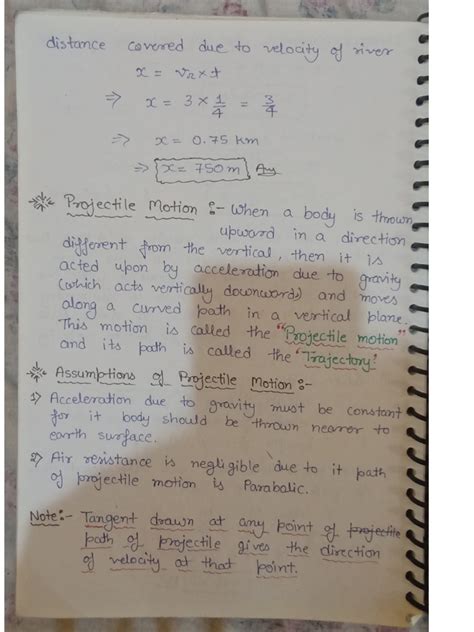 distance covered due to velocity of river
x = vR × t
⇒ x = 3 × 1/4 = 3/4
⇒ x = 0.75 km
⇒ x = 750 m Ans
Projectile Motion :- When a body is thrown
upward in a direction
different from the vertical, then it is
acted upon by acceleration due to gravity
(which acts vertically downward) and moves
along a curved path in a vertical plane.
This motion is called the "Projectile motion"
and its path is called the "Trajectory"
Assumptions of Projectile Motion :-
1) Acceleration due to gravity must be constant
for it body should be thrown nearer to
earth surface.
2) Air resistance is negligible due to it path
of projectile motion is Parabolic.
Note:- Tangent drawn at any point of projectile
path of projectile gives the direction
of velocity at that point.